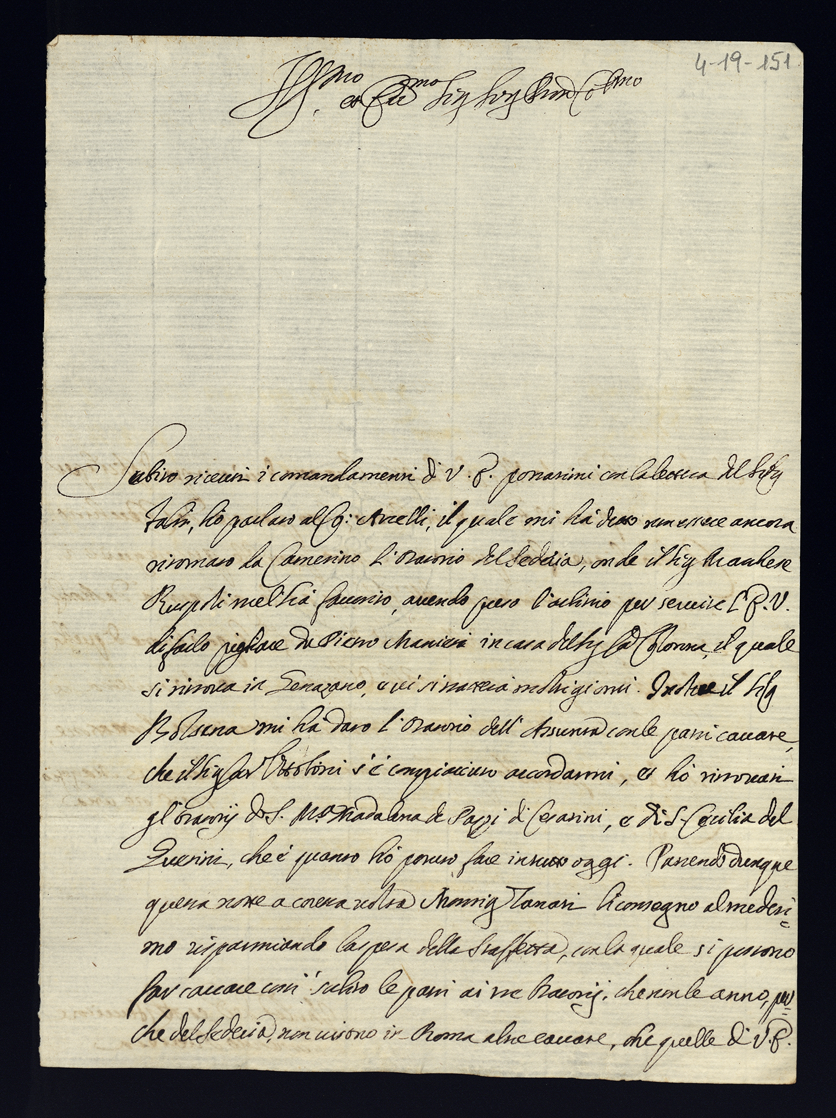 4-19-151
Ill.mo et Ecc.mo Sig.r Sig.r Pron Col.mo
Subito ricevuti i comandamenti di V. E. portatimi con la lettera del Sig.r
Fabr, ho parlato al Co: Arcelli, il quale mi hà detto non essere ancora
ritornato da Camerino l'Oratorio del Sedecia, onde il Sig.r Marchese
Ruspoli mel hà favorito, avendo preso l'arbitrio per servire l'E. V.
di farlo pigliare da Pietro in casa del Sig.r Colonna, il quale
si ritrova in Genazano, e vi si tratterrà molti giorni. Inoltre il Sig.r
Bolsena mi ha dato l'Oratorio dell'Assunta con le parti cavate,
che il Sig.r Car. Ottoboni s'è compiaciuto accordarmi, et hò ritrovati
gl'oratorij di S. M.a Madalena de Pazzi di Cesarini, e di S. Cecilia del
che è quanto hò potuto fare in tutto oggi. Partendo dunque
questa notte a cotesta volta Monsig.r Tanari li consegno al medesi=
mo risparmiando la spesa della Staffetta, con la quale si potrono
far cavare costì subito le parti ai tre Oratorij, che non le anno, per=
che del Sedecia, non vi sono in Roma altre cavate, che quelle di V. E.